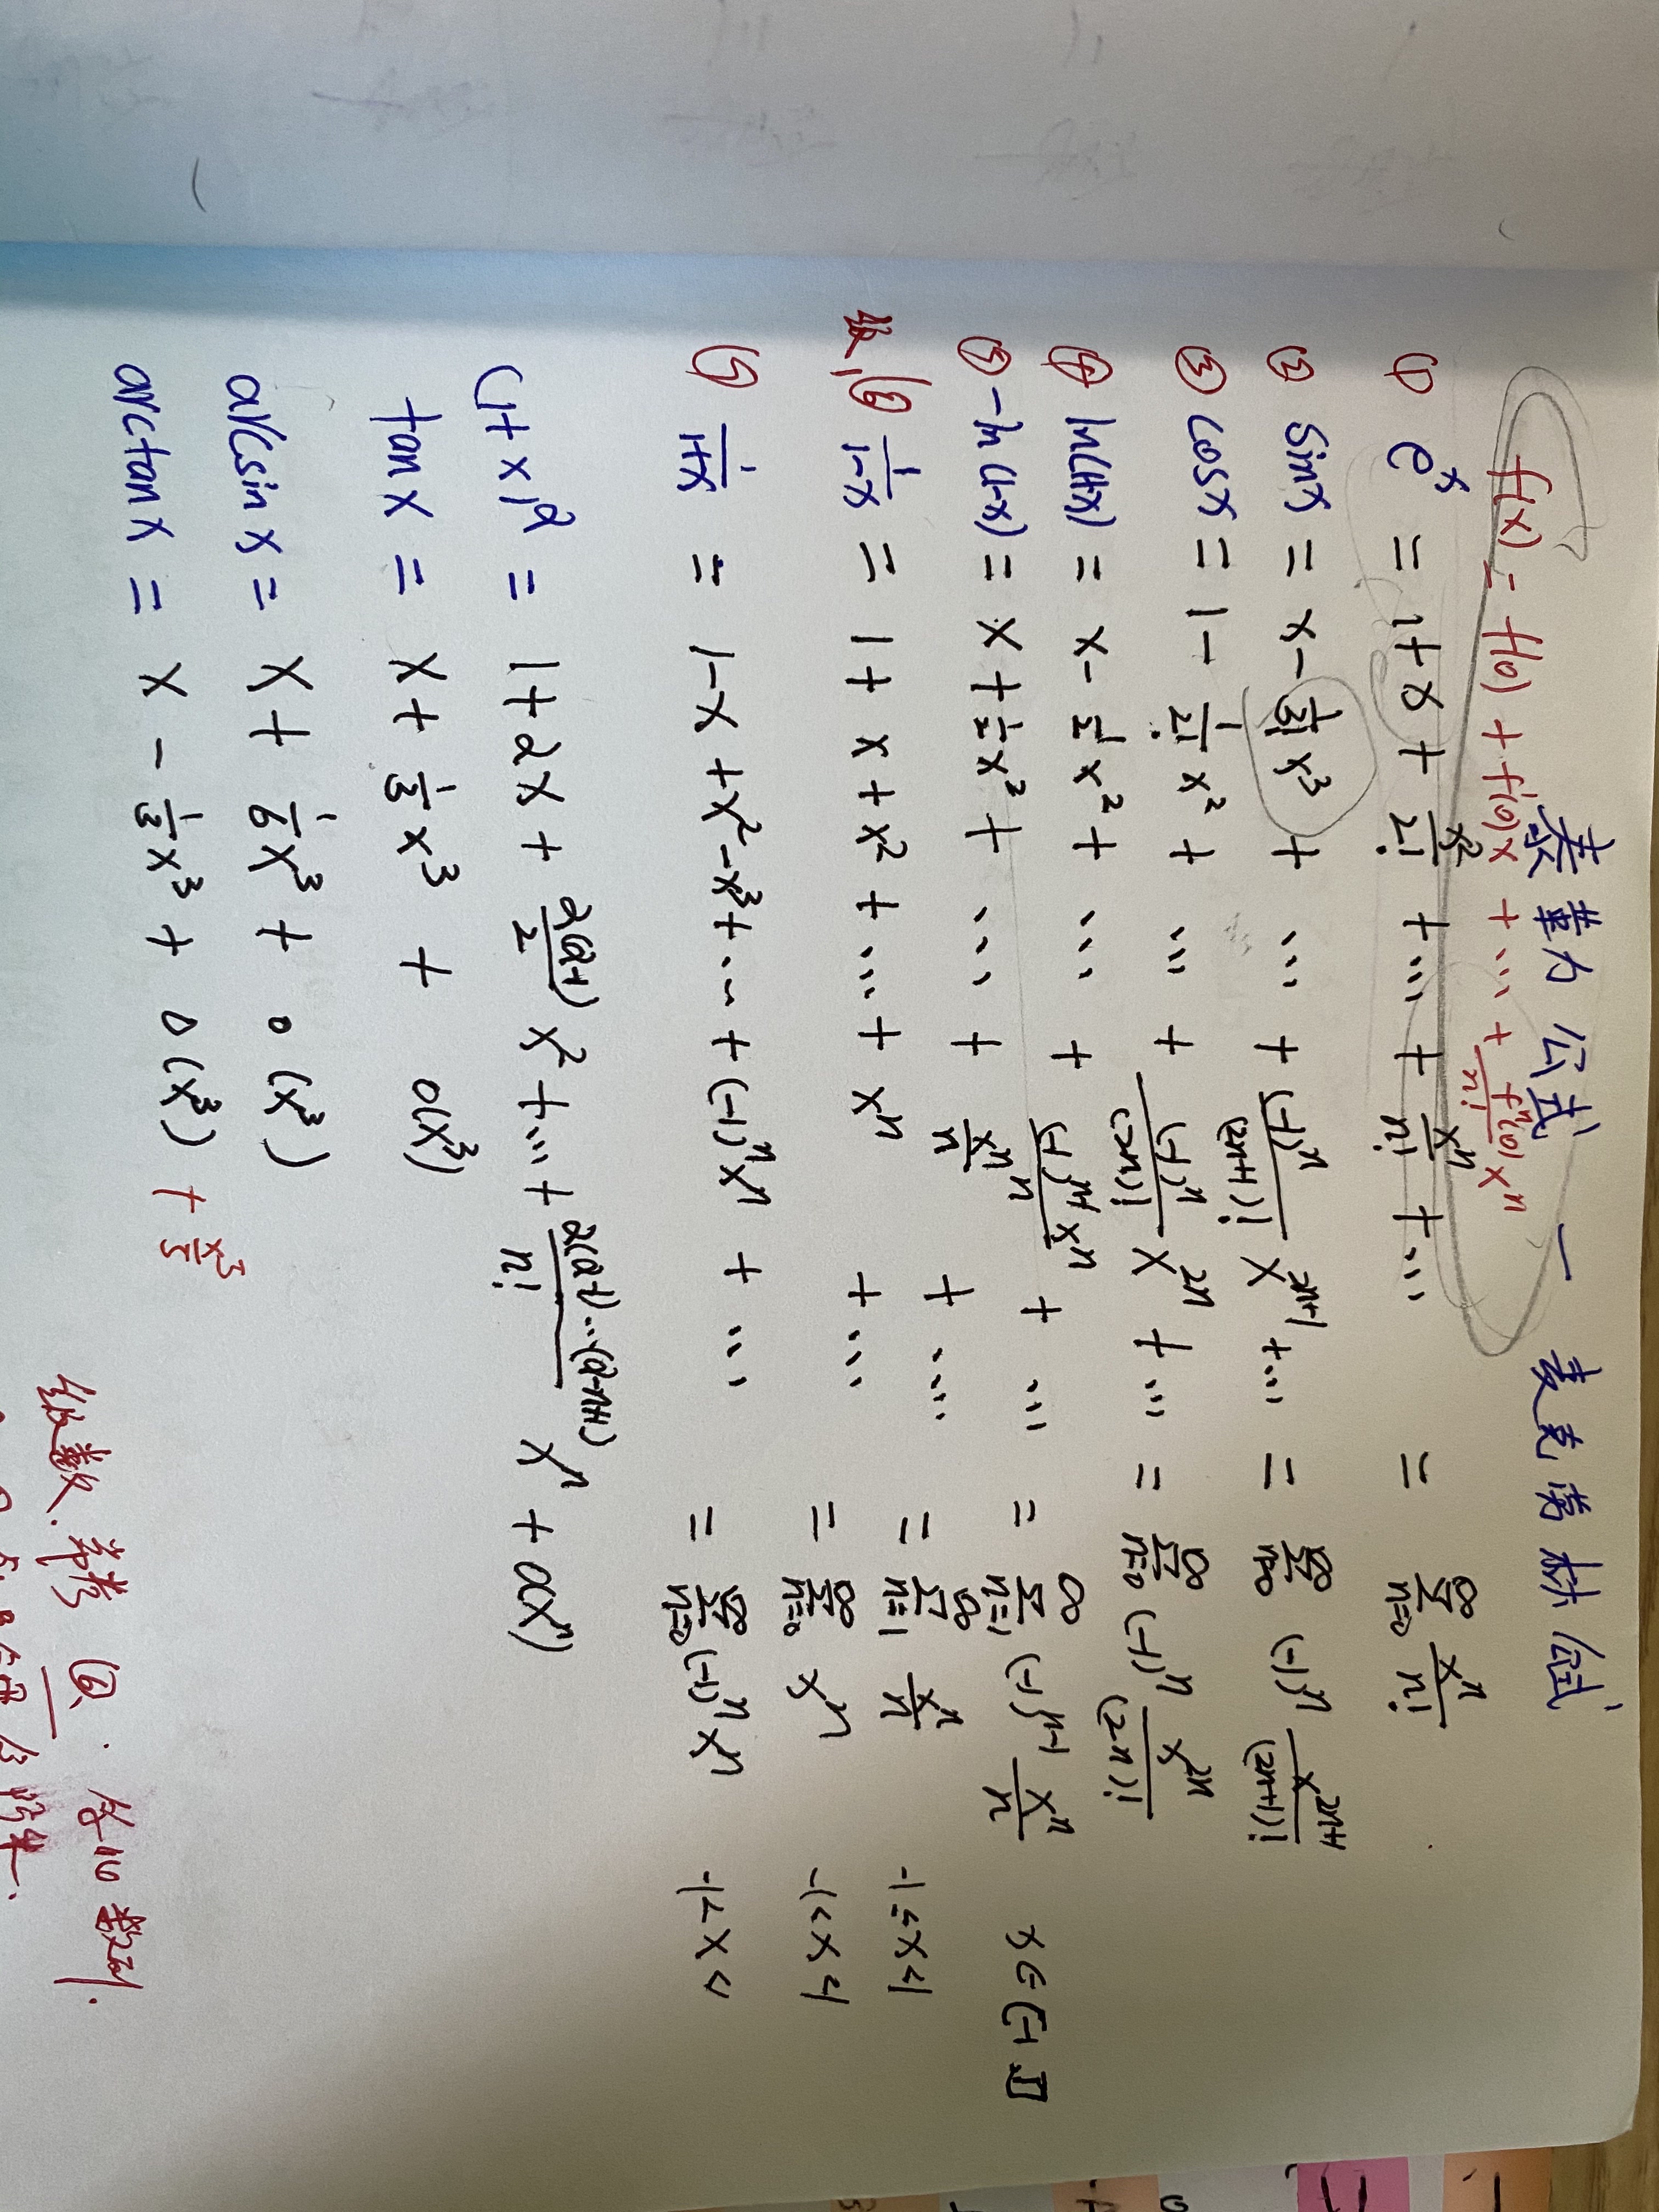 泰勒公式 — 麦克劳林公式
f(x) = f(0) + f'(0)x + ... + fⁿ(0)/n! xⁿ
① eˣ = 1 + x + x²/2! + ... + xⁿ/n! + ... = ∞Σn=0 xⁿ/n!
② sinx = x - 1/3! x³ + ... + (-1)ⁿ/(2n+1)! x²ⁿ⁺¹ + ... = ∞Σn=0 (-1)ⁿ x²ⁿ⁺¹/(2n+1)!
③ cosx = 1 - 1/2! x² + ... + (-1)ⁿ/(2n)! x²ⁿ + ... = ∞Σn=0 (-1)ⁿ x²ⁿ/(2n)!
④ ln(1+x) = x - 1/2 x² + ... + (-1)ⁿ⁻¹xⁿ/n + ... = ∞Σn=1 (-1)ⁿ⁻¹ xⁿ/n x∈(-1,1]
⑤ -ln(1-x) = x + 1/2 x² + ... + xⁿ/n + ... = ∞Σn=1 xⁿ/n -1≤x<1
⑥ 1/1-x = 1 + x + x² + ... + xⁿ + ... = ∞Σn=0 xⁿ -1<x<1
⑦ 1/1+x = 1-x+x²-x³+...+(-1)ⁿxⁿ + ... = ∞Σn=0 (-1)ⁿxⁿ -1<x<
(1+x)ᵅ = 1+αx + α(α-1)/2 x² + ... + α(α-1)...(α-n+1)/n! xⁿ + o(xⁿ)
tanx = x + 1/3 x³ + o(x³)
arcsinx = x + 1/6 x³ + o(x³)
arctanx = x - 1/3 x³ + o(x³) + x⁵/5
级数